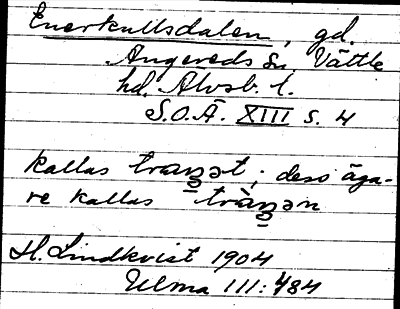 Enerkullsdalen, gd.
Angereds sn, Vättle
hd. Älvsb. l.
S.O.Ä. XIII s. 4
kallas traŋət; dess äga-
re kallas tràŋən
H. Lindkvist 1904
Ulma 111:484